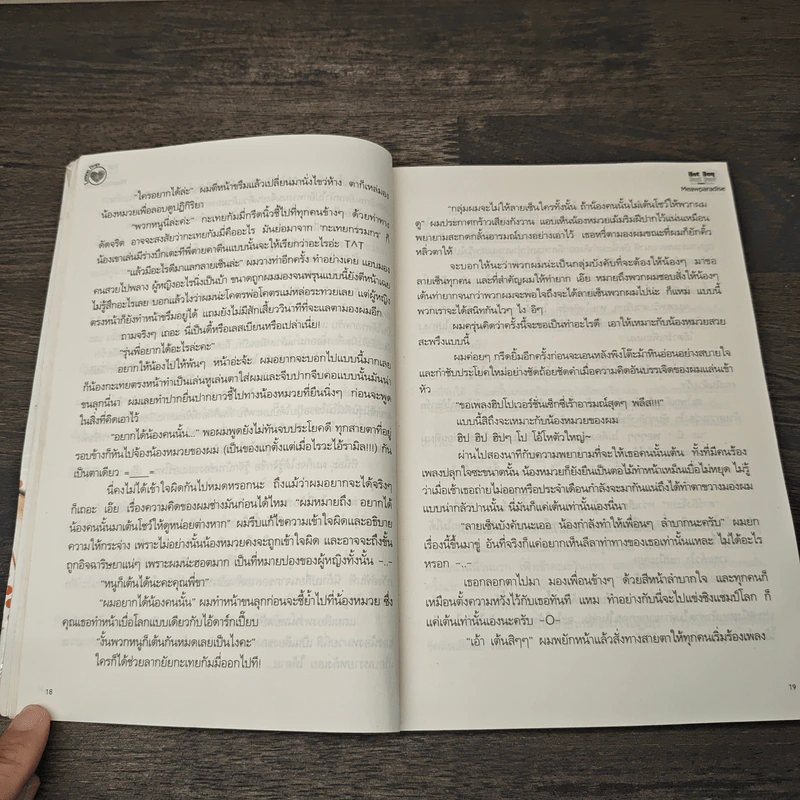 "ใครอยากได้ล่ะ" ผมตีหน้าขรึมแล้วเปลี่ยนมานั่งไขว่ห้าง ตาก็เหล่มอง
น้องหมวยเพื่อลอบดูปฏิกิริยา
"พวกหนูนี่ล่ะค่ะ" กะเทยกัมมี่กรีดนิ้วชี้ไปที่ทุกคนข้างๆ ด้วยท่าทาง
ดัดจริต อาจจะสงสัยว่ากะเทยกัมมี่คืออะไร มันย่อมาจาก 'กะเทยกรรมกร' ก็
น้องเขาเล่นมีร่างบึกเตะทีพี่ตายคาตีนแบบนั้นจะให้เรียกว่าอะไรอ่ะ TAT
"แล้วมีอะไรดีมาแลกลายเซ็นล่ะ" ผมวางท่าอีกครั้ง ทำอย่างเคย แอบมอง
คนสวยไปพลาง ผู้หญิงอะไรนิ่งเป็นบ้า ขนาดถูกผมมองจนพรุนแบบนี้ยังตีหน้าเฉย
ไม่รู้สึกอะไรเลย บอกแล้วไงว่าผมน่ะโคตรพ่อโคตรแม่หล่อระทวยเลย แต่ผู้หญิง
ตรงหน้าก็ยังทำหน้าขรึมอยู่ได้ แถมยังไม่มีสักเสี้ยววินาทีที่จะแลตามองผมอีก
ถามจริงๆ เถอะ นี่เป็นตี๋หรือเลสเบียนหรือเปล่าเนี่ย!
"รุ่นพี่อยากได้อะไรล่ะคะ"
อยากให้น้องไปให้พ้นๆ หน้าอ่ะจ้ะ ผมอยากจะบอกไปแบบนี้มากเลย
ก็น้องกะเทยตรงหน้าทำเป็นเล่นหูเล่นตาใส่ผมและจีบปากจีบคอแบบนั้นมันน่า
ขนลุกนี่นา ผมเลยทำปากยื่นปากยาวชี้ไปทางน้องหมวยที่ยืนนิ่งๆ ก่อนจะพูด
ในสิ่งที่คิดเอาไว้
"อยากได้น้องคนนั้น..." พอผมพูดยังไม่ทันจบประโยคดี ทุกสายตาที่อยู่
รอบข้างก็หันไปจ้องน้องหมวยของผม (เป็นของแกตั้งแต่เมื่อไรวะไอ้รามิล!!!) กัน
เป็นตาเดียว =____=
นี่คงไม่ได้เข้าใจผิดกันไปหมดหรอกนะ ถึงแม้ว่าผมอยากจะได้จริงๆ
ก็เถอะ เอ้ย เรื่องความคิดของผมช่างมันก่อนได้ไหม "ผมหมายถึง อยากได้
น้องคนนั้นมาเต้นโชว์ให้ดูหน่อยต่างหาก" ผมรีบแก้ไขความเข้าใจผิดและอธิบาย
ความให้กระจ่าง เพราะไม่อย่างนั้นน้องหมวยคงจะถูกเข้าใจผิด และอาจจะถึงขั้น
ถูกอิจฉาริษยาแน่ๆ เพราะผมน่ะฮอตมาก เป็นที่หมายปองของผู้หญิงทั้งนั้น -..-
"หนูก็เต้นได้นะคะคุณพี่ขา"
"ผมอยากได้น้องคนนั้น" ผมทำหน้าขนลุกก่อนจะชี้ย้ำไปที่น้องหมวย ซึ่ง
คุณเธอทำหน้าเบื่อโลกแบบเดียวกับไอ้ดาร์กเปี๊ยบ
"งั้นพวกหนูก็เต้นกันหมดเลยเป็นไงคะ"
ใครก็ได้ช่วยลากยัยกะเทยกัมมี่ออกไปที!
18
Meawparadise
"กลุ่มผมจะไม่ให้ลายเซ็นใครทั้งนั้น ถ้าน้องคนนั้นไม่เต้นโชว์ให้พวกผม
ดู" ผมประกาศกร้าวเสียงกังวาน แอบเห็นน้องหมวยเม้มริมฝีปากไว้แน่นเหมือน
พยายามสะกดกลั้นอารมณ์บางอย่างเอาไว้ เธอหรี่ตามองผมขณะที่ผมก็ยักคิ้ว
หลิ่วตาให้
จะบอกให้นะว่าพวกผมน่ะเป็นกลุ่มบังคับที่จะต้องให้น้องๆ มาขอ
ลายเซ็นทุกคน และที่สำคัญผมให้ทำยาก เอ๊ย หมายถึงพวกผมชอบสั่งให้น้องๆ
เต้นท่ายากจนกว่าพวกผมจะพอใจถึงจะได้ลายเซ็นพวกผมไปน่ะ ก็แหม แบบนี้
พวกเราจะได้สนิทกันไวๆ ไง อิๆ
ผมครุ่นคิดว่าครั้งนี้จะขอเป็นท่าอะไรดี เอาให้เหมาะกับน้องหมวยสวย
สะพรึงแบบนี้
ผมค่อยๆ กรีดยิ้มอีกครั้งก่อนจะเอนหลังพิงโต๊ะม้าหินอ่อนอย่างสบายใจ
และกำชับประโยคใหม่อย่างชัดถ้อยชัดคำเมื่อความคิดอันบรรเจิดของผมแล่นเข้า
หัว
"ขอเพลงฮิปโปเวอร์ชั่นเซ็กซี่เร้าอารมณ์สุดๆ พลีส!!!"
แบบนี้สิถึงจะเหมาะกับน้องหมวยของผม
ฮิป ฮิป ฮิปๆ โป โอ้โหตัวใหญ่~
ผ่านไปสองนาทีกับความพยายามที่จะให้เธอคนนั้นเต้น ทั้งที่มีคนร้อง
เพลงปลุกใจซะขนาดนั้น น้องหมวยก็ยังยืนเป็นตอไม้ทำหน้าเหม็นเบื่อไม่หยุด ไม่รู้
ว่าเมื่อเช้าเธอถ่ายไม่ออกหรือประจำเดือนกำลังจะมากันแน่ถึงได้ทำตาขวางมองผม
แบบน่ากลัวปานนั้น นี่มันก็แค่เต้นเท่านั้นเองนี่นา
"ลายเซ็นบังคับนะเออ น้องกำลังทำให้เพื่อนๆ ลำบากนะครับ" ผมยก
เรื่องนี้ขึ้นมาขู่ อันที่จริงก็แค่อยากเห็นลีลาท่าทางของเธอเท่านั้นแหละ ไม่ได้อะไร
หรอก -..-
เธอกลอกตาไปมา มองเพื่อนข้างๆ ด้วยสีหน้าลำบากใจ และทุกคนก็
เหมือนตั้งความหวังไว้กับเธอทันที แหม ทำอย่างกับนี่จะไปแข่งชิงแชมป์โลก ก็
แค่เต้นเท่านั้นเองนะครับ -O-
"เอ้า เต้นสิๆๆ" ผมพยักหน้าแล้วสั่งทางสายตาให้ทุกคนเริ่มร้องเพลง
19